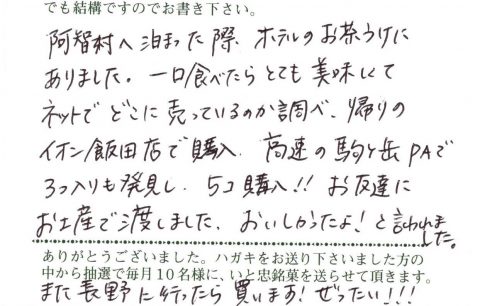 でも結構ですのでお書き下さい。
阿智村へ泊まった際、ホテルのお茶うけに
ありました。一口食べたらとても美味しくて
ネットでどこに売っているのか調べ、帰りの
イオン飯田店で購入、高速の駒ヶ岳PAで
3つ入りも発見し、5コ購入!! お友達に
お土産で渡しました、おいしかったよ!と言われま
した。
ありがとうございました。ハガキをお送り下さいました方の
中から抽選で毎月10名様に、いと忠銘菓を送らせて頂きます。
また長野に行ったら買います!ぜったい!!!